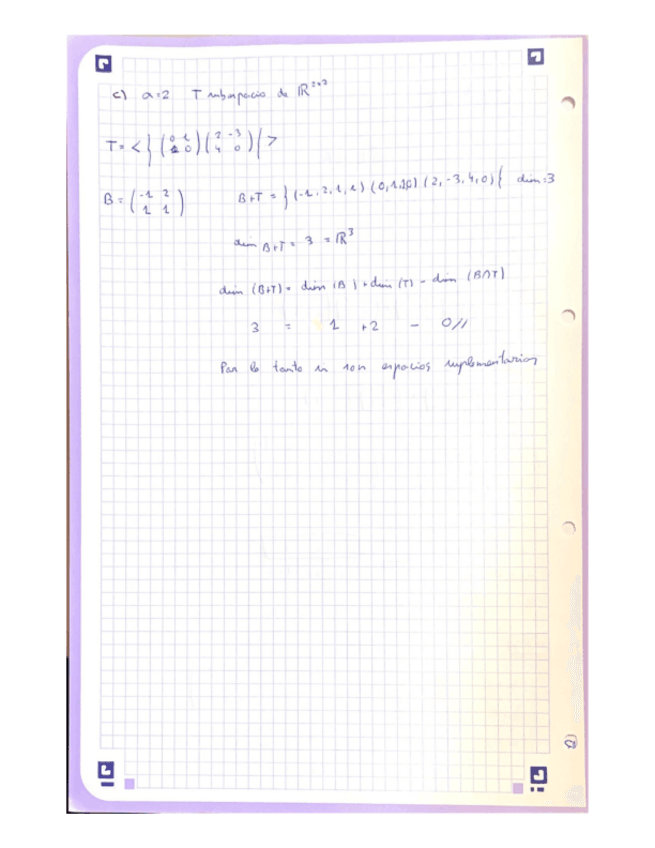 c) a=2 T subespacio de ℝ²ˣ²
T = < { (0 1 / 2 0) (2 -3 / 4 0) { >
B = (-1 2 / 1 1) B+T = } (-1, 2, 1, 1) (0,1, ,0) (2, -3, 4, 0) { dim=3
dim B+T = 3 = ℝ³
dim (B+T) = dim (B) + dim (T) - dim (B∩T)
3 = 1 + 2 - 0//
Por lo tanto son espacios suplementarios